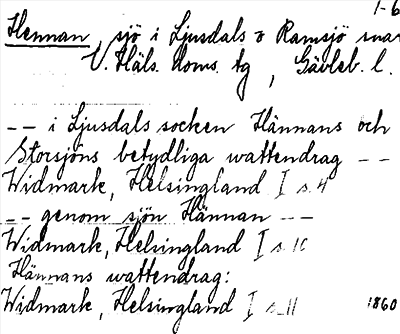 1-6
Hennan, sjö i Ljusdals o Ramsjö snar
V. Häls. doms. tg, Gävleb. l.
-- i Ljusdals socken Hännans och
Storsjöns betydliga wattendrag --
Widmark, Helsingland I s. 4
-- genom sjön Hännan --
Widmark, Helsingland I s. 10
Hännans wattendrag:
Widmark, Helsingland I s. 11 1860